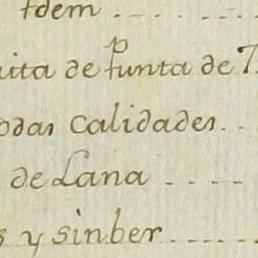 Idem
de Punta de
odas calidades
de Lana
y sinber